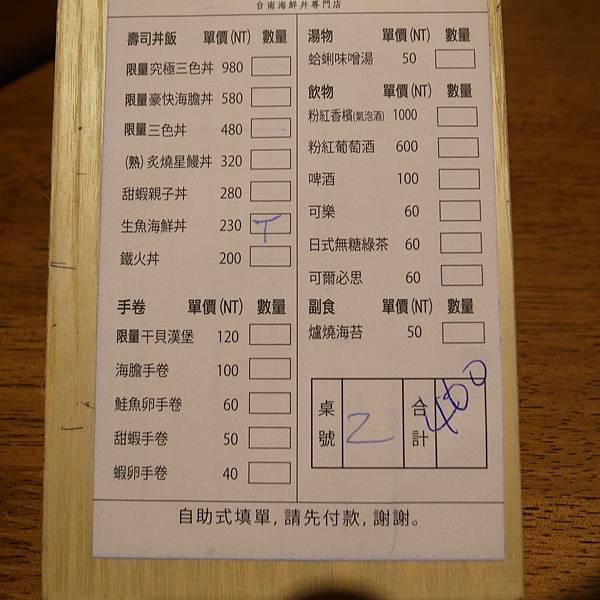 台南海鮮丼專門店
壽司丼飯 單價(NT) 數量
限量究極三色丼 980
限量豪快海膽丼 580
限量三色丼 480
(熟)炙燒星鰻丼 320
甜蝦親子丼 280
生魚海鮮丼 230 T
鐵火丼 200
手卷 單價(NT) 數量
限量干貝漢堡 120
海膽手卷 100
鮭魚卵手卷 60
甜蝦手卷 50
蝦卵手卷 40
湯物 單價(NT) 數量
蛤蜊味噌湯 50
飲物 單價(NT) 數量
粉紅香檳(氣泡酒) 1000
粉紅葡萄酒 600
啤酒 100
可樂 60
日式無糖綠茶 60
可爾必思 60
副食 單價(NT) 數量
爐燒海苔 50
桌號 2 合計 460
自助式填單,請先付款,謝謝。